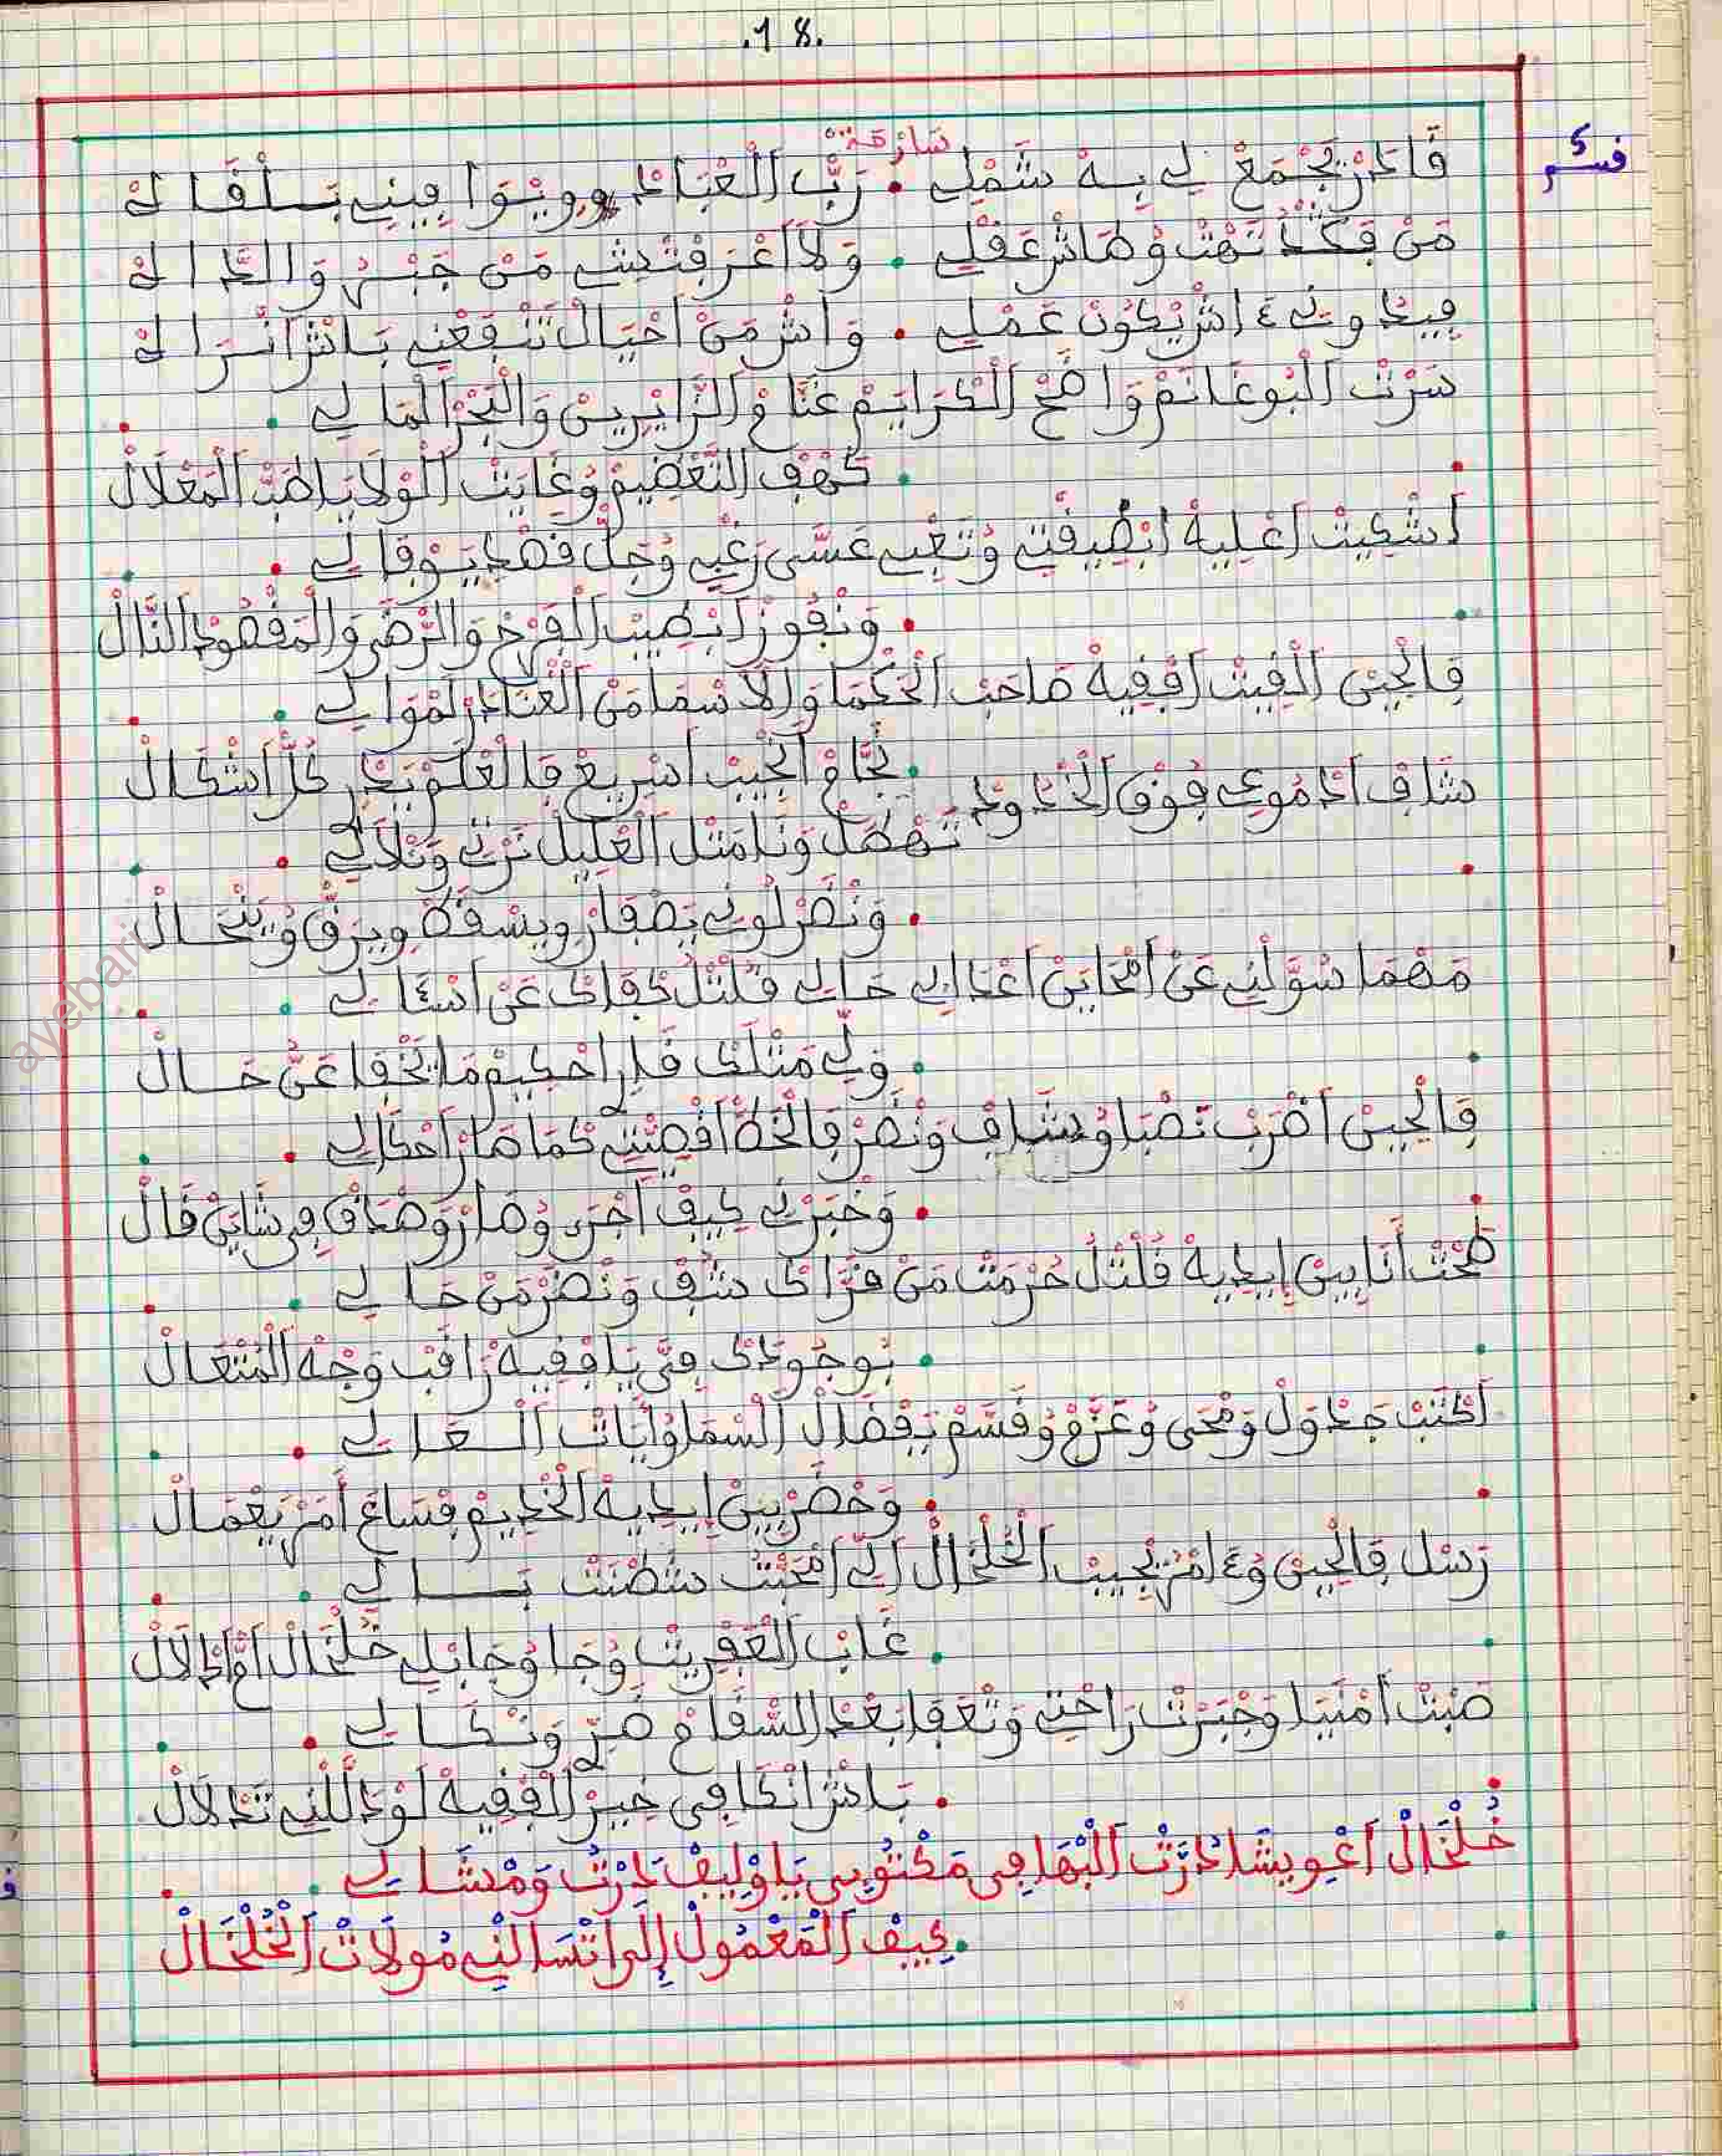 .18.
سَارْحَة
قسم 5
قَادَرْ يَجْمَعْ لِي بِهْ شَمْلِي . رَبّْ الْعْبَادْ وِينْوَا فِينِي بَسْلْقَاكْ
مَنْ فَكْدُ تَهْتْ وُطَاشْ عَقْلِي . وَلَا اعْرَفْتِشِي مَنْ جَنْبْ وَالدَّاكْ
فِيدُونِي ءَاشْ يْكُونْ عَمْلِي . وَاشْ مَنْ احْيَالْ تَنْفَعْنِي بَاشْ انْرَاكْ
سَرْتْ الْبُوغَانَمْ وَاضَحْ الْكْرَايَمْ عَنَّاعْ الزَّايْرِينْ وَالْبَحْرْ الْمَالِي .
. كَهْفْ التَّعْضِيمْ وُغَايَتْ الْوْلَايَا طَبّْ الْمَعْلَالْ
اشْكِيتْ اعْلِيهْ ابْضِيقْتِي وُتَعْبِي عَسَّى رَغْبِي وُجَلّْ قَصْدِي يَوْفَالِي .
. وَنْفُوزْ ابْطِيبْ الْفَرْحْ وَالرّْضَى وَالْمَقْصُودْ النَّالْ
فَالْحِينْ الْقِيتْ افْقِيهْ صَاحَبْ الْحَكْمَا وَالْاسْمَا مَنْ الْعْنَادَرْ لَمْوَالِي .
. نَجَّاحْ الْجِيبْ اسْرِيعْ فَالْعْلَمْ يَدْرِي كُلّْ اشْكَالْ
شَافْ ادْمُوعِي فُوقْ الْخْدُودْ تَهْطَلْ وَنَا مَثْلْ الْعْلِيلْ نَرْثِي وَنْلَالِي .
. وَنْضَرْ لُونِي يَصْفَارْ وِيسْقَمْ وِيرَقّْ وُيَنْحَالْ
مَهْمَا سْوَّلْنِي عَنْ امْحَايْنِي اعْدَالِي حَالِي قُلْتْلُ كْفَاكْ عَنْ اسْئَالِي .
. وَلِّي مَثْلَكْ قَارِي احْكِيمْ مَا يَخْفَا عَنُّ حَالْ
فَالْحِينْ اضْرَبْ تَصْبَا وُشَافْ وَنْضَرْ فَالْخَطّْ اقْصِيّْتِي كْمَا صَارْ احْكَالِي .
. وَخْبَرْنِي كِيفْ اجْرَى وُصَارْ وَصْدَاقْ فِي شَانِي قَالْ
طَحْتْ أَنَا بِينْ إيدِيهْ قُلْتْلُ حُرْمَتْ مَنْ قَرَّاكْ شُفْ وَنْضَرْ مَنْ حَالِي .
. بُوجُودَكْ فِيَّ يَا فْقِيهْ رَاقَبْ وَجْهْ الْمُتْعَالْ
اكْتَبْ جَدْوَلْ وَمْحَى وُعَزَّمْ وُقَسَّمْ بَفْضَالْ السْمَا وُايَاتْ الْعَالِي .
. وَحْضَرْ بِينْ إيدِيهْ الْخْدِيمْ فِسَاعَ أَمْرُ يَعْمَالْ
رَسْلُ فَالْحِينْ وُءَامْرُ يْجِيبْ الْخَلْخَالْ الِّي امْحَبْتُ شَطْنَتْ بَالِي .
. غَابْ الْعَفْرِيتْ وُجَا وُجَابْلِي خُلْخَالْ امّْ ادْلَالْ
صَبْتْ امْنَيَا وَجْبَرْتْ رَاحْتِي وَتْعَافَا بَعْدْ السّْقَامْ ضَرِّي وَنْكَالِي .
. بَاشْ انْكَافِي خِيرْ الْفْقِيهْ لَوْدْ لَلْنِي تَدْلَالْ
خُلْخَالْ اعْوِيشَا دَرْتْ الْبْهَا فِي مَكْتُوبِي يَا وْلِيفْ دَرْتُ وَمْشَالِي .
. كِيفْ الْمَعْمُولْ إلَى اتْسَالْنِي مُولَاتْ الْخُلْخَالْ
ayebari